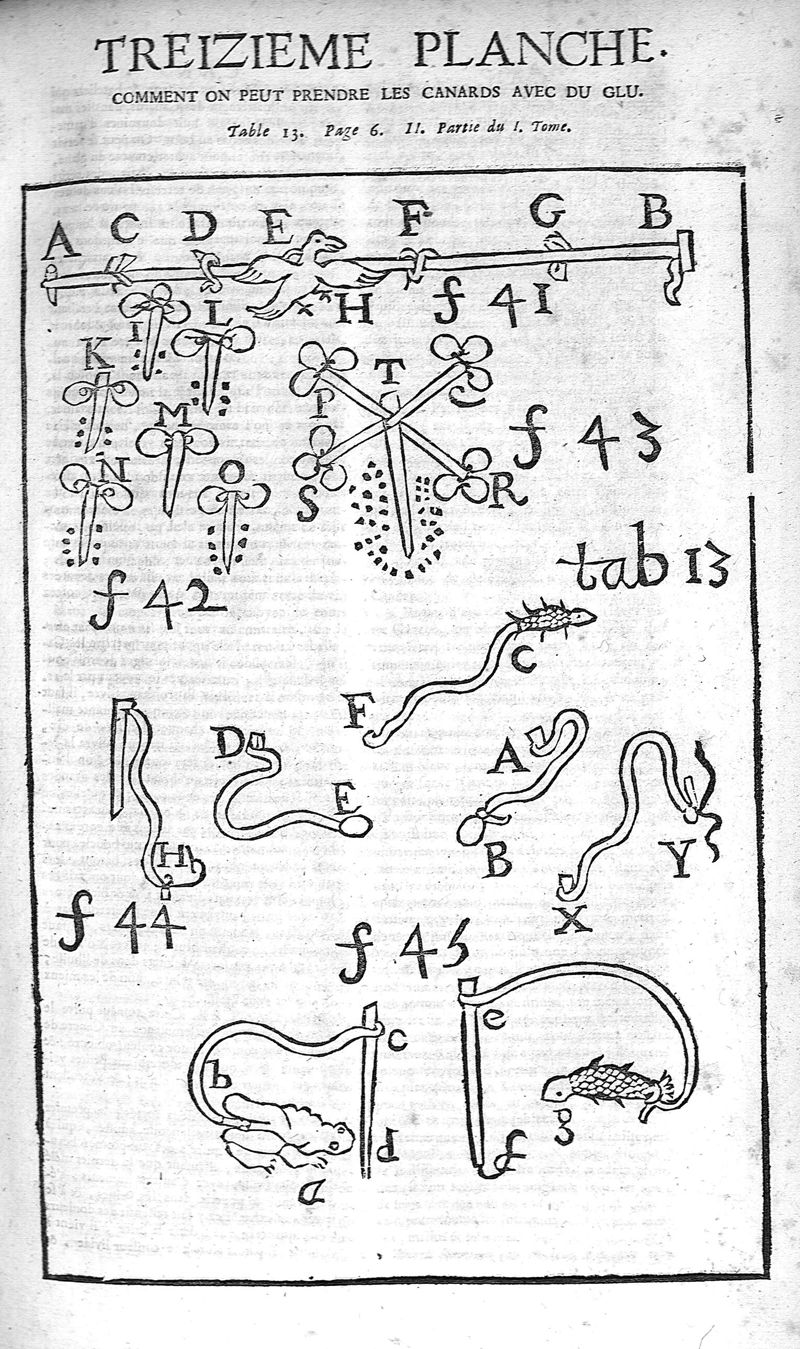 TREIZIEME PLANCHE.
COMMENT ON PEUT PRENDRE LES CANARDS AVEC DU GLU.
Table 13. Page 6. II. Partie du I. Tome.
A C D E F G B
H f 41
I L
K T
P C
M f 43
N O S R
f 42
tab 13
C
F
D A
E
H B Y
X
f 44
f 45
c e
b
d f g
a